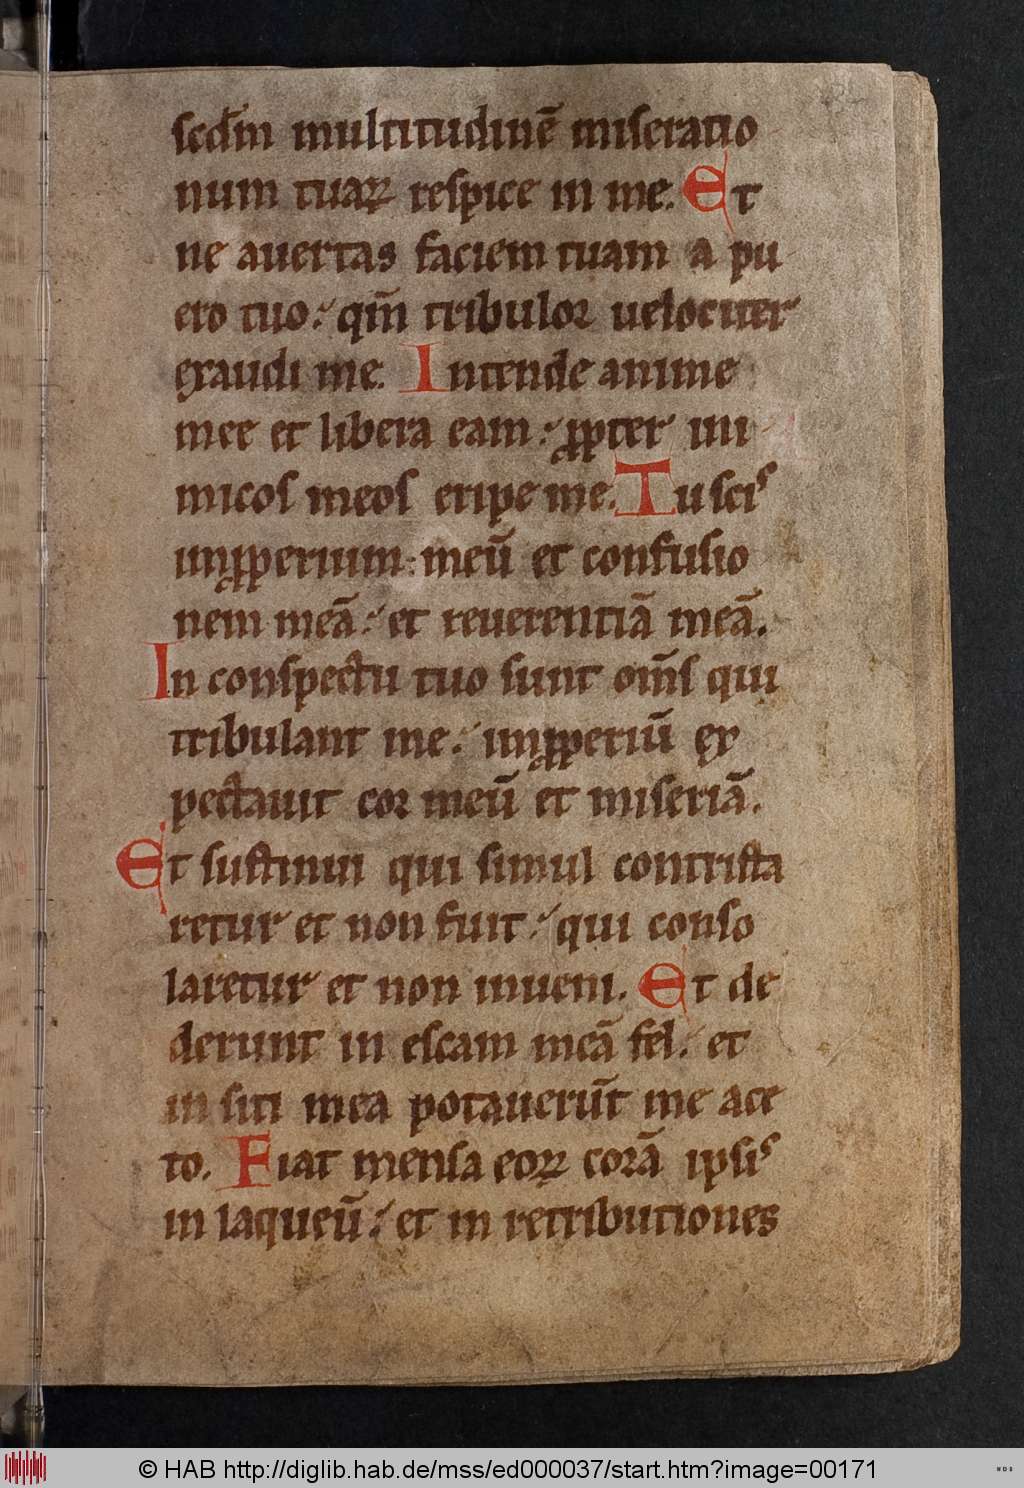 scdm̄ multitudinē miseratio
num tuaꝝ respice in me. Et
ne auertas faciem tuam a pu
ero tuo : qm̄ tribulor uelociter
exaudi me. Intende anime
mee et libera eam : ꝓpter ini
micos meos eripe me. Tu scis
inꝓperium meū et confusio
nem meā : et reuerentiā meā.
In conspectu tuo sunt om̄s qui
tribulant me : inꝓperiū ex
pectauit cor meū et miseriā.
Et sustinui qui simul contrista
retur et non fuit : qui conso
laretur et non inueni. Et de
derunt in escam meā fel : et
in siti mea potauerūt me ace
to. Fiat mensa eoꝝ corā ipsis
in laqueū : et in retributiones
© HAB http://diglib.hab.de/mss/ed000037/start.htm?image=00171